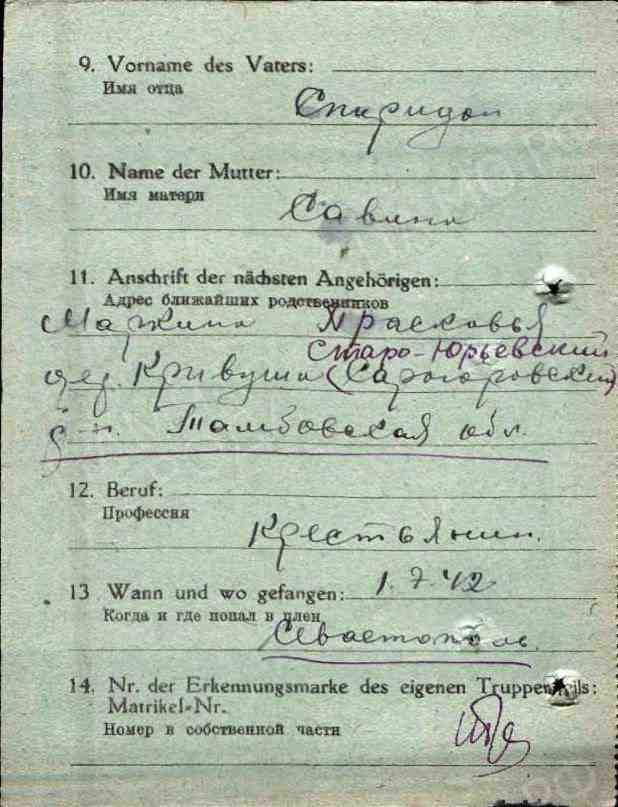 9. Vorname des Vaters:
Имя отца
Спиридон
10. Name der Mutter:
Имя матери
Савина
11. Anschrift der nächsten Angehörigen:
Адрес ближайших родственников
Маркина Прасковья
Старо-Юрьевский
дер. Кривуша (
р-н. Тамбовская обл.
12. Beruf:
Профессия
Крестьянин.
13 Wann und wo gefangen: 1.7.42
Когда и где попал в плен
Севастополь.
14. Nr. der Erkennungsmarke des eigenen Truppenteils:
Matrikel-Nr.
Номер в собственной части